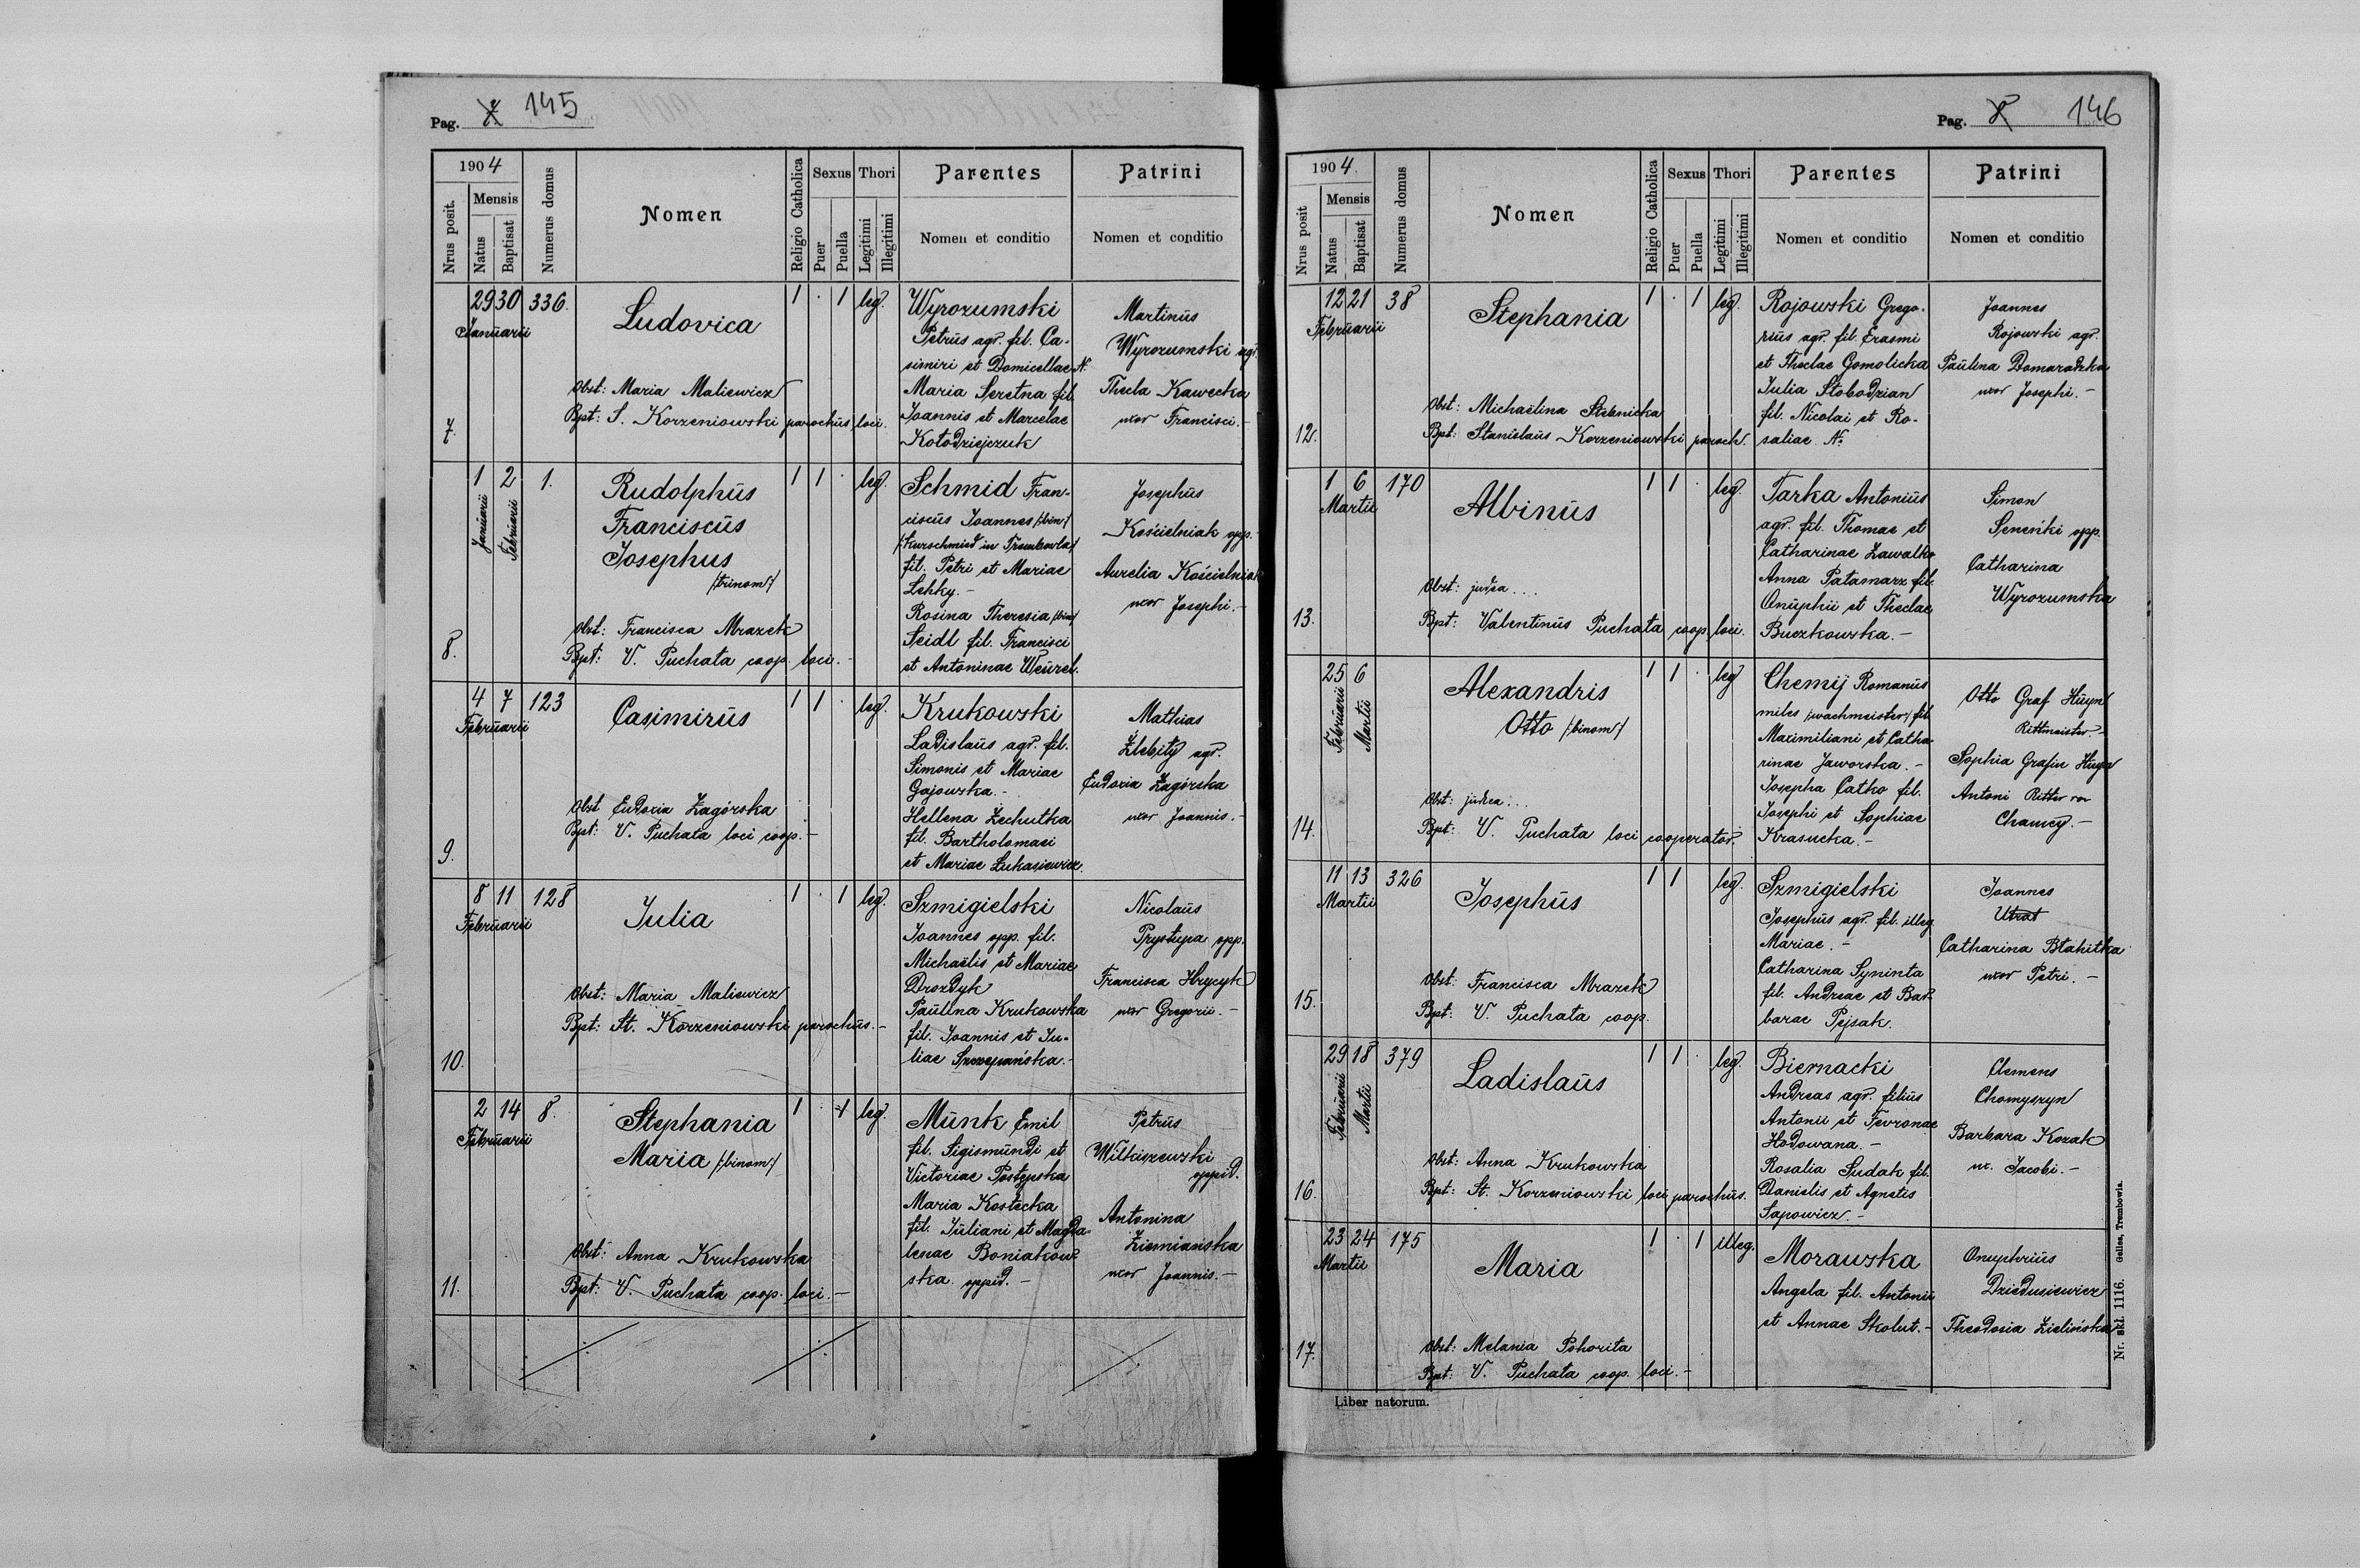 Pag. 145
1904
Nrus posit.
Mensis
Natus
Baptisat
Numerus domus
Nomen
Religio Catholica
Sexus
Puer
Puella
Thori
Legitimi
Illegitimi
Parentes
Nomen et conditio
Patrini
Nomen et conditio
7.
29 30 336.
Januarii
Ludovica
1 . 1 leg.
Obst: Maria Maliewicz
Bpt: S. Korzeniowski parochus loci.
Wyrozumski
Petrus agr. fil. Ca-
simiri et Domicellae N.
Maria Seretna fil.
Joannis et Marcelae
Kołodziejczuk
Martinus
Wyrozumski agr.
Thecla Kawecka
uxor Francisci.-
8.
1 2 1.
Januarii
Februarii
Rudolphus
Franciscus
Josephus
/:trinom:/
1 1 . leg.
Obst: Francisca Mrazek
Bpt: V. Puchata coop. loci.-
Schmid Fran-
ciscus Joannes /:bin:/
/:Kurschmied in Trembowla:/
fil. Petri et Mariae
Lehky.-
Rosina Theresia /:bin:/
Seidl fil. Francisci
et Antoninae Weurel.
Josephus
Kościelniak opp.-
Aurelia Kościelniak
uxor Josephi.-
9.
4 7 123
Februarii
Casimirus
1 1 . leg.
Obst Eudoxia Zagórska
Bpt: V. Puchata loci coop.-
Krukowski
Ladislaus agr. fil.
Simonis et Mariae
Gajowska.-
Hellena Zechutka
fil. Bartholomaei
et Mariae Łukasiewicz.
Mathias
Żłobity agr.
Eudoxia Zagórska
uxor Joannis.-
10.
8 11 128
Februarii
Julia
1 . 1 leg.
Obst: Maria Maliewicz
Bpt: St. Korzeniowski parochus.-
Szmigielski
Joannes opp. fil.
Michaëlis et Mariae
Drozdyk
Paulina Krukowska
fil. Joannis et Ju-
liae Szczepańska.-
Nicolaus
Prystupa opp.
Francisca Hrycyk
uxor Gregorii.-
11.
2 14 8.
Februarii
Stephania
Maria /:binom:/
1 . 1 leg.
Obst: Anna Krukowska
Bpt: V. Puchata coop. loci.-
Munk Emil
fil. Sigismundi et
Victoriae Postępska
Maria Kostecka
fil. Juliani et Magda-
lenae Boniakow-
ska oppid.-
Petrus
Witkiszewski
oppid.
Antonina
Ziemiańska
uxor Joannis.-
Pag. 146
1904.
Nrus posit
Mensis
Natus
Baptisat
Numerus domus
Nomen
Religio Catholica
Sexus
Puer
Puella
Thori
Legitimi
Illegitimi
Parentes
Nomen et conditio
Patrini
Nomen et conditio
12.
12 21 38
Februarii
Stephania
1 . 1 leg.
Obst: Michaëlina Stebnicka
Bpt: Stanislaus Korzeniowski paroch.
Rojowski Grego-
rius agr. fil. Erasmi
et Theclae Gomolicka
Julia Słobodzian
fil. Nicolai et Ro-
saliae N.
Joannes
Rojowski agr.
Paulina Domaradzka
uxor Josephi.-
13.
1 6 170
Martii
Albinus
1 1 . leg.
Obst: judea...
Bpt: Valentinus Puchata coop. loci.
Tarka Antonius
agr. fil. Thomae et
Catharinae Zawałko
Anna Patamarz fil.
Onuphii et Theclae
Buczkowska.-
Simon
Seneńki opp.
Catharina
Wyrozumska
14.
25 6
Februarii
Martii
Alexandris
Otto /:binom:/
1 1 . leg
Obst: judea...
Bpt: V. Puchata loci cooperator.
Chemij Romanus
miles /:wachmeister:/ fil.
Maximiliani et Catha-
rinae Jaworska.-
Josepha Catko fil.
Josephi et Sophiae
Krasucka.-
Otto Graf Huyn
Rittmeister.-
Sophia Grafin Huyn
Antoni Ritter von
Chamcy.-
15.
11 13 326
Martii
Josephus
1 1 leg.
Obst: Francisca Mrazek
Bpt: V. Puchata coop.
Szmigielski
Josephus agr. fil. illeg.
Mariae.-
Catharina Syninta
fil. Andreae et Bar-
barae Pejsak.
Joannes
Utrat
Catharina Błahitka
uxor Petri.-
16.
29 18 379
Februarii
Martii
Ladislaus
1 1 . leg.
Obst: Anna Krukowska
Bpt: St. Korzeniowski loci parochus.
Biernacki
Andreas agr. filius
Antonii et Fevronae
Hodowana.-
Rosalia Sudak fil.
Danielis et Agnetis
Sapowicz.-
Clemens
Chomyszyn
Barbara Kozak
ux. Jacobi.-
17.
23 24 175
Martii
Maria
1 . 1 illeg.
Obst: Melania Pohorita
Bpt: V. Puchata coop. loci.-
Morawska
Angela fil. Antonii
et Annae Skolut.-
Onuphrius
Dziedusiewicz
Theodosia Zielińska
Liber natorum.
Nr. skł. 1116. Gelles, Trembowla.